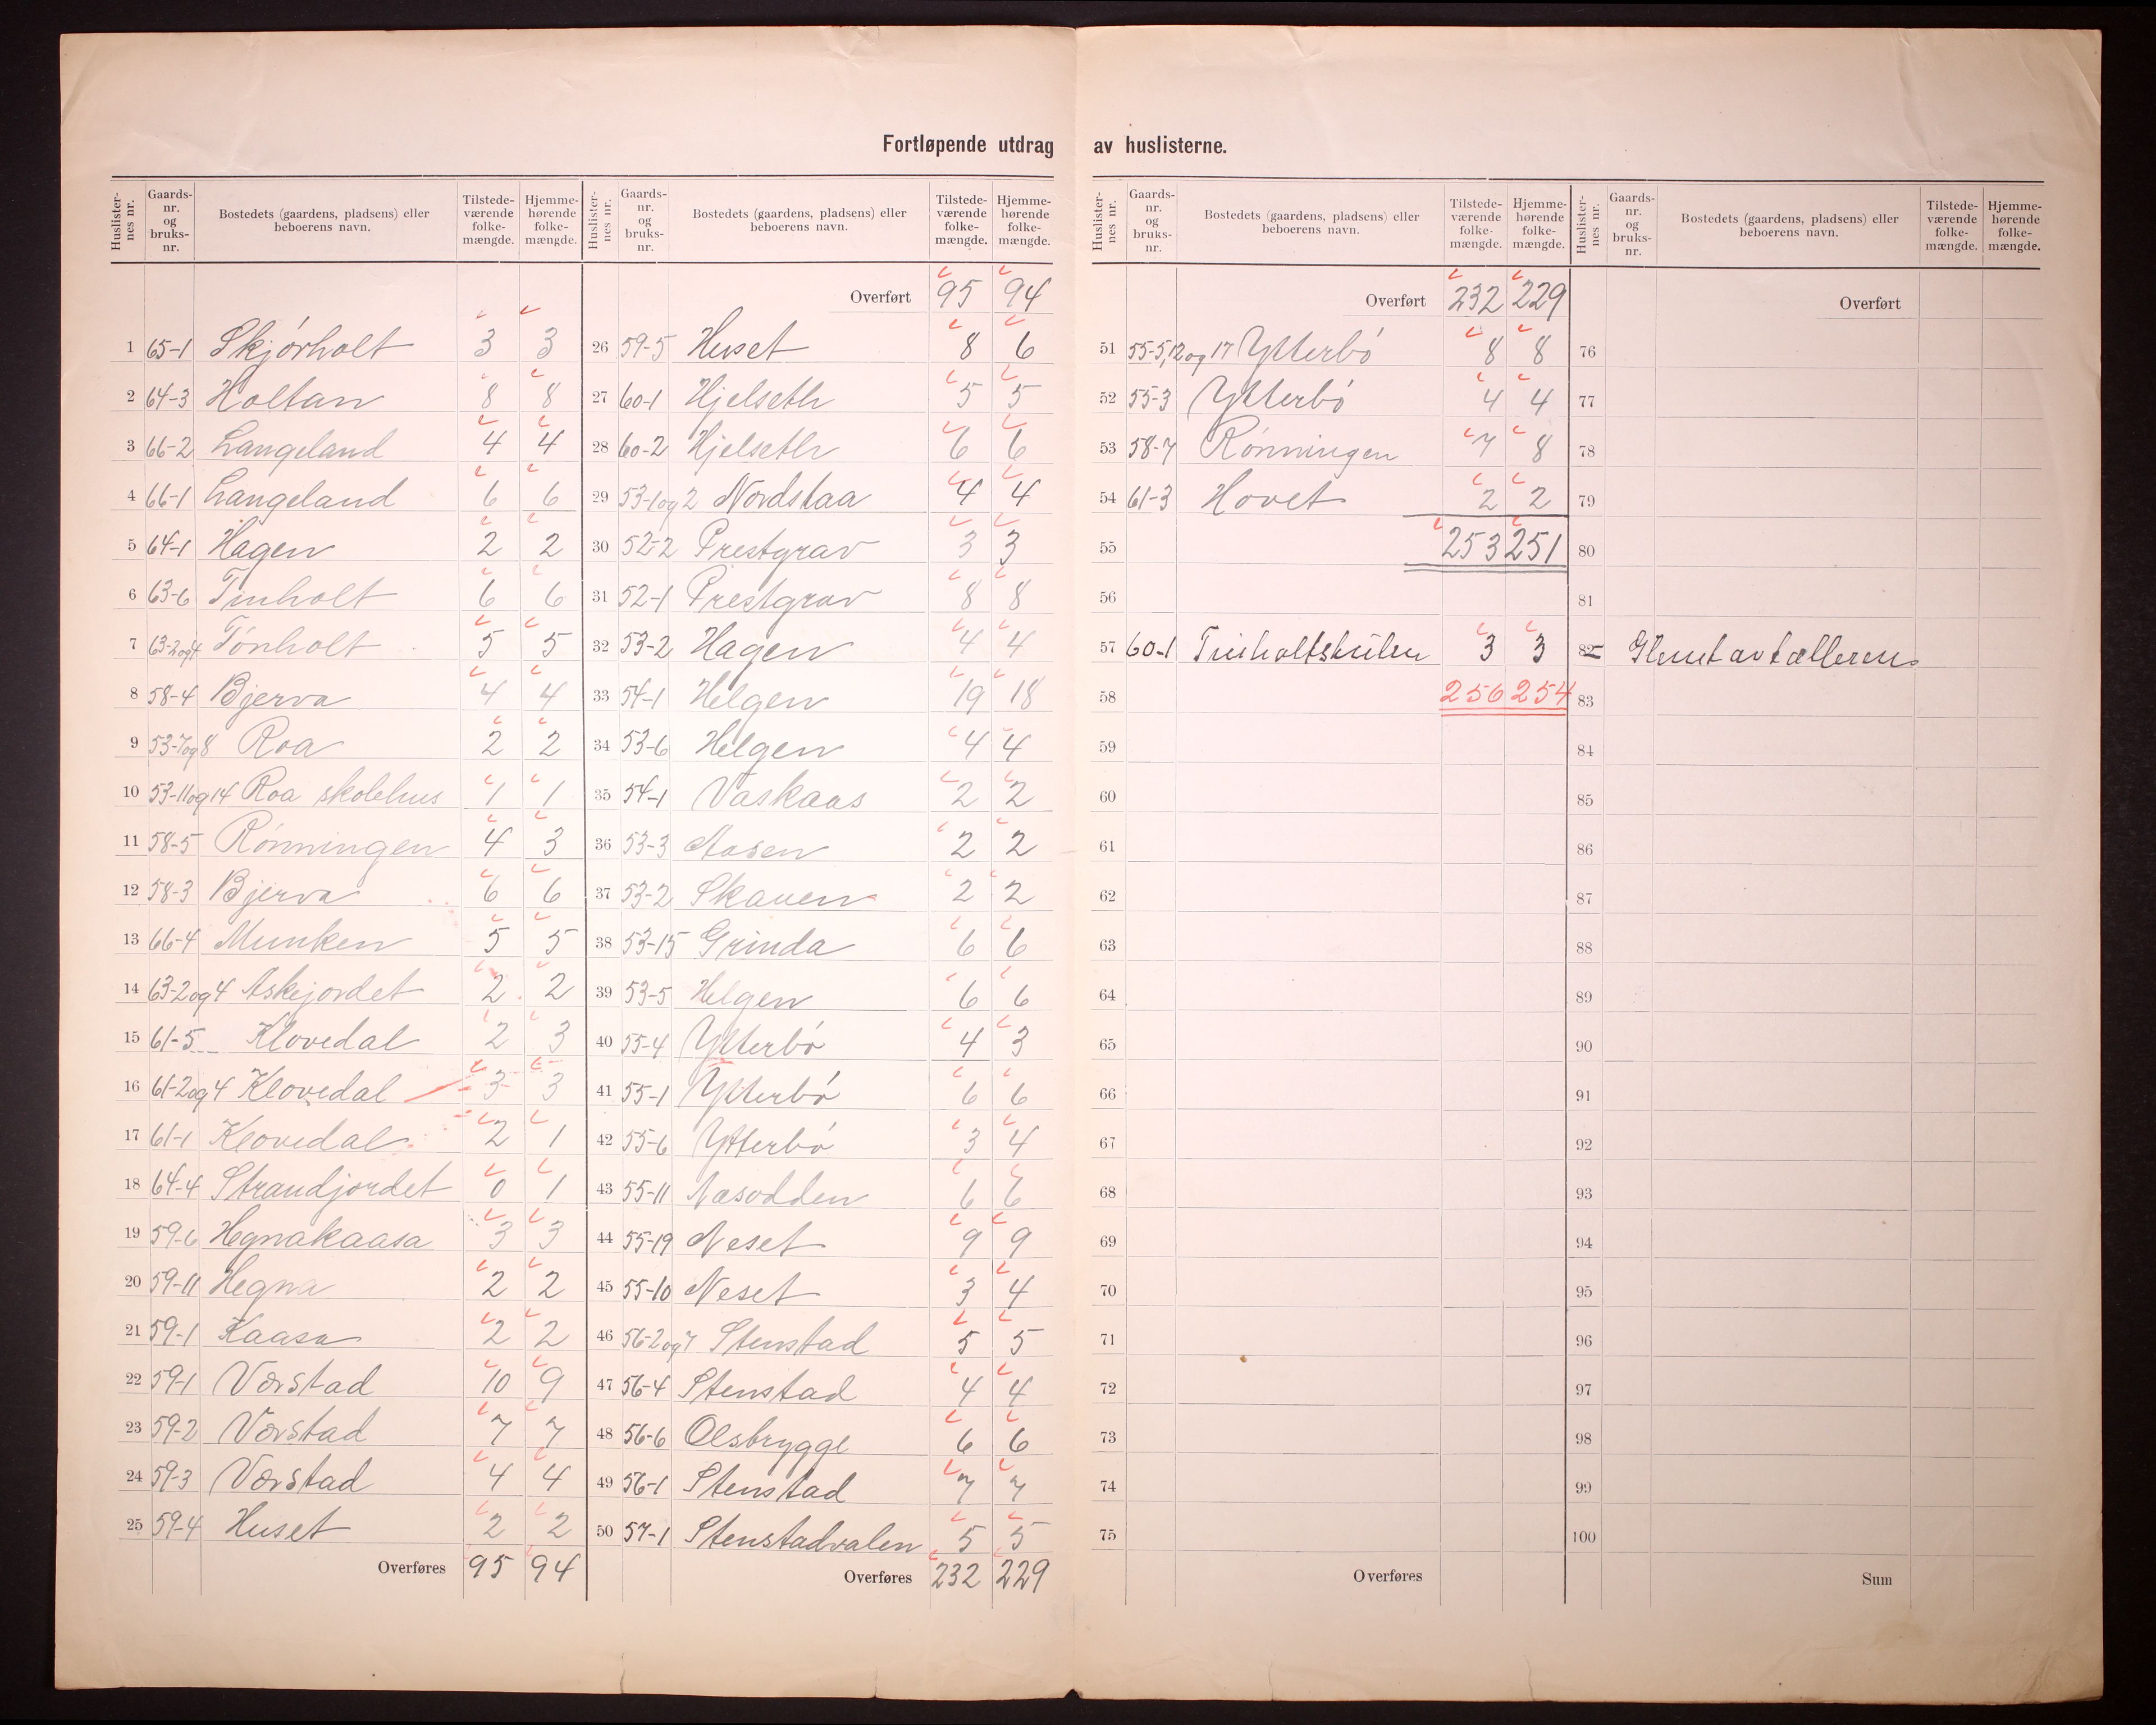 Fortløpende utdrag av huslisterne.
Huslister-nes nr. Gaards-nr. og bruks-nr. Bostedets (gaardens, pladsens) eller beboerens navn. Tilstede-værende folke-mængde. Hjemme-hørende folke-mængde.
1 65-1 Skjørholt 3 3
2 64-3 Holtan 8 8
3 66-2 Langeland 4 4
4 66-1 Langeland 6 6
5 64-1 Hagen 2 2
6 63-6 Tinholt 6 6
7 63-2og4 Tónholt 5 5
8 58-4 Bjerva 4 4
9 53-7og8 Roa 2 2
10 53-11og14 Roa skolehus 1 1
11 58-5 Rónningen 4 3
12 58-3 Bjerva 6 6
13 66-4 Munken 5 5
14 63-2og4 Askejordet 2 2
15 61-5 Klovedal 2 3
16 61-2og4 Klovedal 3 3
17 61-1 Klovedal 2 1
18 64-4 Strandjordet 0 1
19 59-6 Hegnakaasa 3 3
20 59-11 Hegna 2 2
21 59-1 Kaasa 2 2
22 59-1 Vørstad 10 9
23 59-2 Vørstad 7 7
24 59-3 Vørstad 4 4
25 59-4 Huset 2 2
Overføres 95 94
Huslister-nes nr. Gaards-nr. og bruks-nr. Bostedets (gaardens, pladsens) eller beboerens navn. Tilstede-værende folke-mængde. Hjemme-hørende folke-mængde.
Overført 95 94
26 59-5 Huset 8 6
27 60-1 Hjelseth 5 5
28 60-2 Hjelseth 6 6
29 53-1og2 Nordstaa 4 4
30 52-2 Prestgrav 3 3
31 52-1 Prestgrav 8 8
32 53-2 Hagen 4 4
33 54-1 Helgen 19 18
34 53-6 Helgen 4 4
35 54-1 Vaskaas 2 2
36 53-3 Aasen 2 2
37 53-2 Skauen 2 2
38 53-15 Grinda 6 6
39 53-5 Helgen 6 6
40 55-4 Ytterbó 4 3
41 55-1 Ytterbó 6 6
42 55-6 Ytterbó 3 4
43 55-11 Næsodden 6 6
44 55-19 Neset 9 9
45 55-10 Neset 3 4
46 56-2og7 Stenstad 5 5
47 56-4 Stenstad 4 4
48 56-6 Olsbrygge 6 6
49 56-1 Stenstad 7 7
50 57-1 Stenstadvalen 5 5
Overføres 232 229
Huslister-nes nr. Gaards-nr. og bruks-nr. Bostedets (gaardens, pladsens) eller beboerens navn. Tilstede-værende folke-mængde. Hjemme-hørende folke-mængde.
Overført 232 229
51 55-5,12og 17 Ytterbó 8 8
52 55-3 Ytterbó 4 4
53 58-7 Rónningen 7 8
54 61-3 Hovet 2 2
55 253 251
56
57 60-1 Tinholtshulen 3 3
58 256 254
59
60
61
62
63
64
65
66
67
68
69
70
71
72
73
74
75
Overføres
Huslister-nes nr. Gaards-nr. og bruks-nr. Bostedets (gaardens, pladsens) eller beboerens navn. Tilstede-værende folke-mængde. Hjemme-hørende folke-mængde.
Overført
76
77
78
79
80
81
82 Glemt av tælleren
83
84
85
86
87
88
89
90
91
92
93
94
95
96
97
98
99
100
Sum